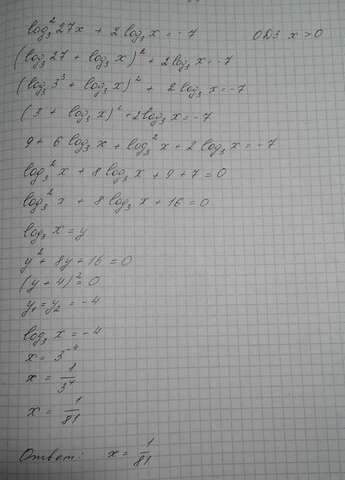 log₃²27x + 2log₃x = -7 ОДЗ x > 0
(log₃27 + log₃x)² + 2log₃x = -7
(log₃3³ + log₃x)² + 2log₃x = -7
(3 + log₃x)² + 2log₃x = -7
9 + 6log₃x + log₃²x + 2log₃x = -7
log₃²x + 8log₃x + 9 + 7 = 0
log₃²x + 8log₃x + 16 = 0
log₃x = y
y² + 8y + 16 = 0
(y + 4)² = 0
y₁ = y₂ = -4
log₃x = -4
x = 3⁻⁴
x = 1/3⁴
x = 1/81
Ответ: x = 1/81